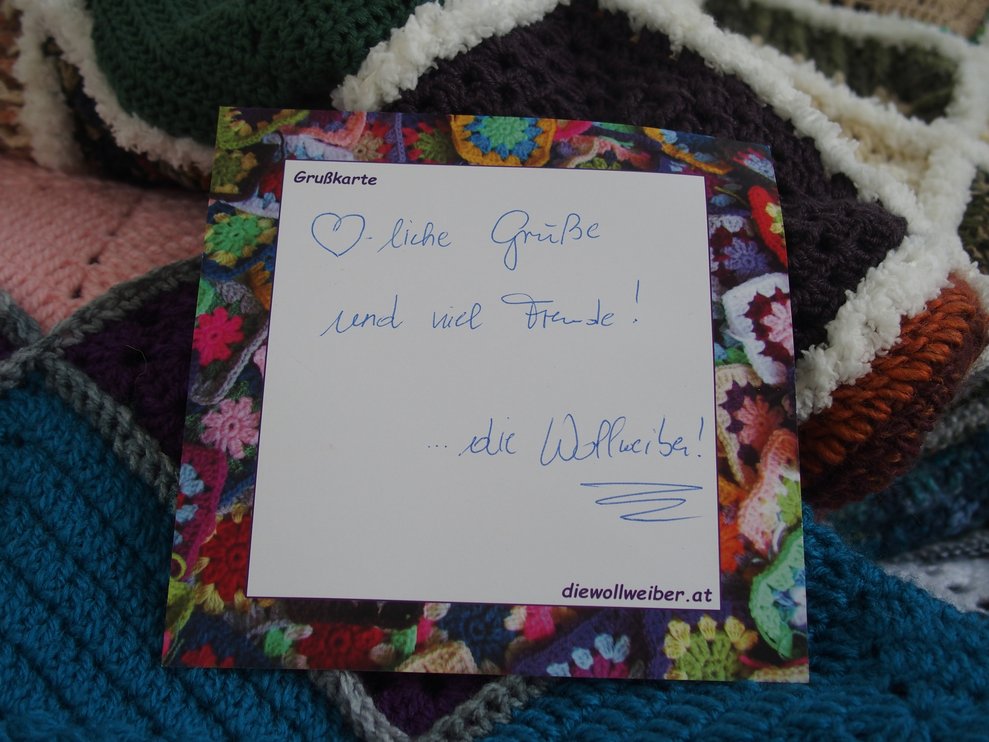 Grußkarte
♡-liche Grüße
und viel Freude!
... die Wollweiber!
diewollweiber.at